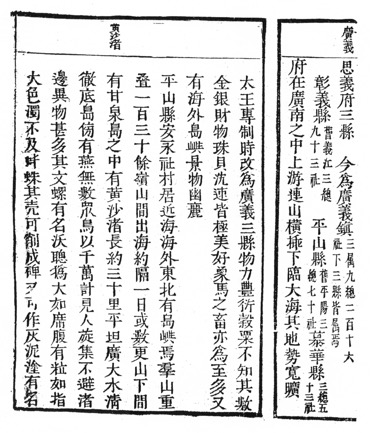 廣義
思義府三縣 今為廣義鎮 三屬九總二百十六社下三縣皆屬焉
彰義縣 舊義江三總九十三社 平山縣 舊平陽三總七十社 慕華縣 三總五十三社
府在廣南之中上游連山橫極下臨大海其地勢寬曠
黄沙渚
太王專制時改為廣義三縣物力豐衍穀粟不知其數
金銀財物珠貝沉速皆極美好象馬之畜亦為至多又
有海外島嶼景物幽麗
平山縣安永社村居近海海外東北有島嶼焉羣山重
疊一百三十餘嶺山間出海約隔一日或數更山下間
有甘泉島之中有黄沙渚長約三十里平坦廣大水清
徹底島傍有燕無數衆鳥以千萬計見人旋集不避渚
邊異物甚多其文螺有名沃聰螞大如席腹有粒如指
大色濁不及蚌珠其壳可削成碑又可作灰泥塗有名